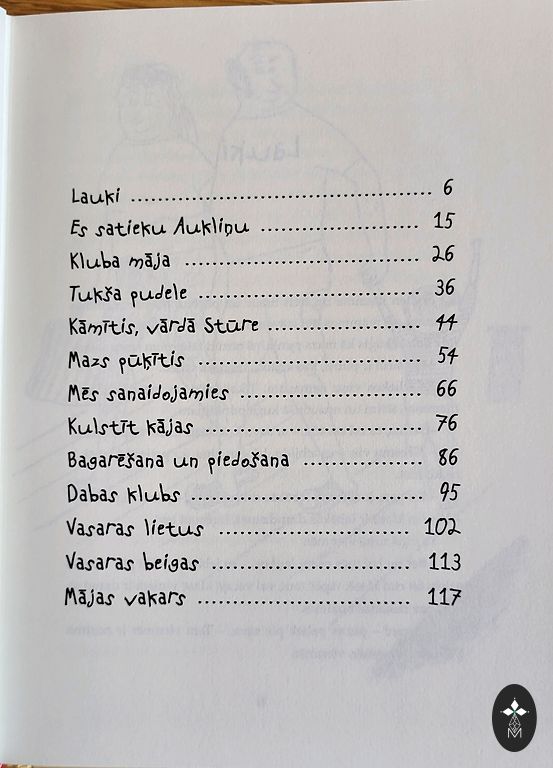 Lauki ........ 6
Es satieku Aukliņu ........ 15
Kluba māja ........ 26
Tukša pudele ........ 36
Kāmītis, vārdā Stūre ........ 44
Mazs pūķītis ........ 54
Mēs sanaidojamies ........ 66
Kulstīt kājas ........ 76
Bagarēšana un piedošana ........ 86
Dabas klubs ........ 95
Vasaras lietus ........ 102
Vasaras beigas ........ 113
Mājas vakars ........ 117
M